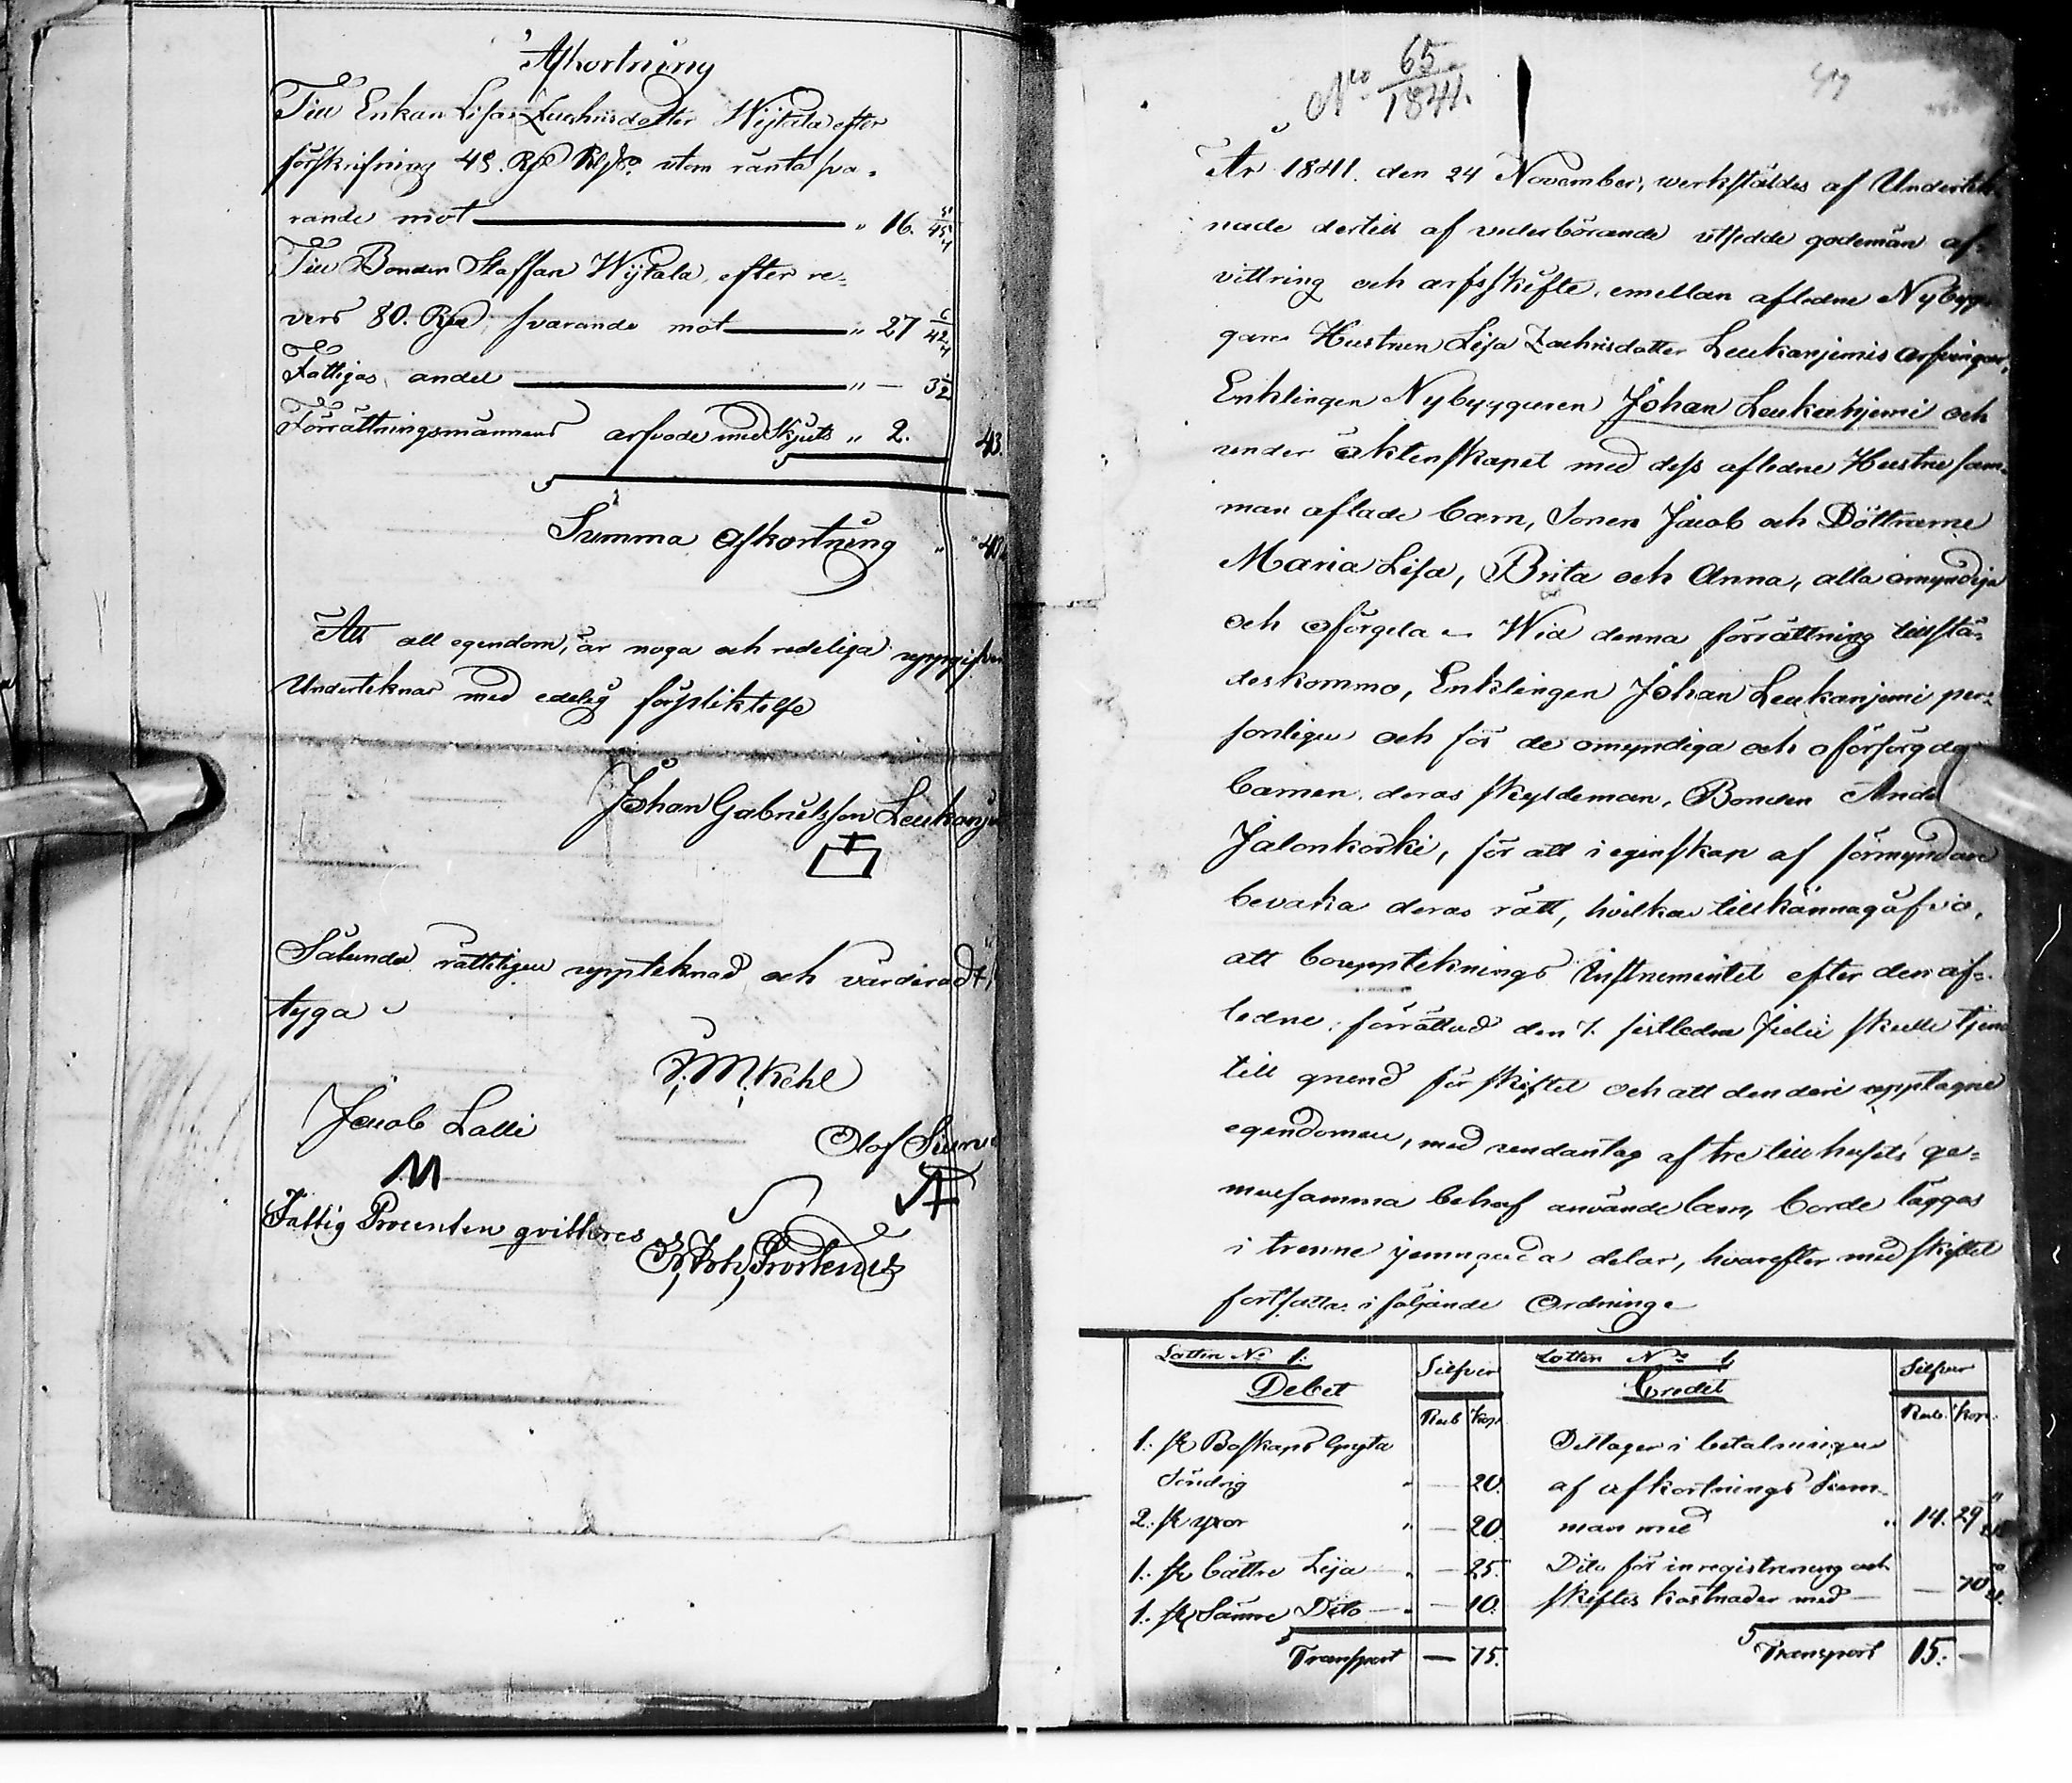 Afkortning
Till Enkan Lisa Zachrisdotter Wijtala efter
förskrifning 48. Rg utom ränta sva-
rande mot " 16. 45
Till Bonden Staffan Wijtala, efter re-
vers 80. svarande mot " 27 42
Fattigas andel " — 32
Förrättningsmännens arfvode med Skjuts " 2. 43.
Summa Afkortning "
Att all egendom, är noga och redeliga uppgifven
Underteknar med edelig förpliktelse
Johan Gabrielsson Leukanje
Sålunda rätteligen uppteknad och värderadt,
tyga
J. M. Kehl
Jacob Lalli
Olof
Fattig Procenten qvitteras
No 65
1841.
År 1841. den 24 November, werkstäldes af Undertek-
nade dertill af vederbörande utsedde godemän af-
vittring och arfsskifte, emellan aflidne Nybyg-
gare Hustrun Lisa Zachrisdotter Leukanjemis arfvingar,
Enklingen Nybyggaren Johan Leukanjemi och
under äktenskapet med dess aflidne Hustru sam-
man aflade barn, Sonen Jacob och Döttrarne
Maria Lisa, Brita och Anna, alla omyndiga
och oförgda. Wid denna förrättning tillstä-
deskommo, Enklingen Johan Leukanjemi per-
sonligen och för de omyndiga och oförsörgda
barnen, deras skyldeman, Bonden Ande
Jalonkoski, för att i egenskap af förmyndare
bevaka deras rätt, hvilka tillkännagåfvo,
att bouppteknings Instrumentet efter den af-
ledne, förrättad den 7. sistledne Julii skulle tjena
till grund för skiftet och att den deri upptagne
egendomen, med undantag af tre till husets ge-
mensamma behof använde lam, borde läggas
i trenne jemngoda delar, hvarefter med skiftet
fortsattes i följande Ordning.
Lotten No 1: Silfver Lotten No 1 Silfver
Debet Credet
Rub Kop. Rub. Kop.
1. st Boskaps Gryta Deltager i betalningen
Söndrig " — 20. af afkortnings Sum-
2. st yxor " — 20. man med " 14. 29
1. st bättre Lija " — 25. Dito för inregistrering och
1. st Sämre Dito " — 10. skiftes kostnader med — — 70
Transport — 75. Transport 15. —